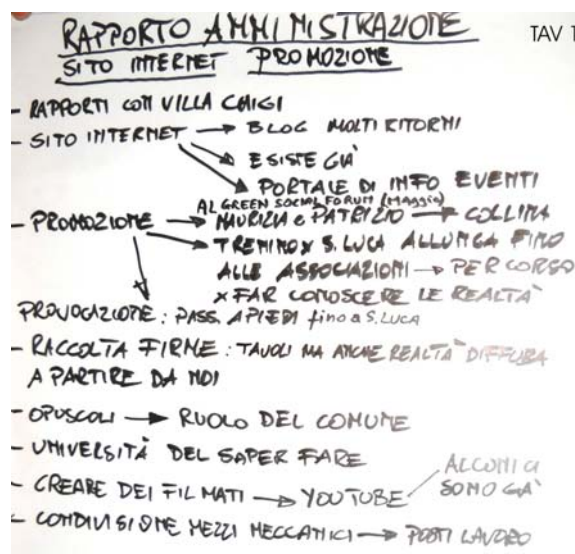 RAPPORTO AMMINISTRAZIONE
TAV 1
SITO INTERNET PROMOZIONE
- RAPPORTI CON VILLA CHIGI
- SITO INTERNET → BLOG MOLTI RITORNI
→ ESISTE GIÀ
→ PORTALE DI INFO EVENTI
AL GREEN SOCIAL FORUM (MAGGIO)
- PROMOZIONE → MAURIZIA e PATRIZIO → COLLINA
→ TRENINO x S. LUCA ALLUNGA FINO
ALLE ASSOCIAZIONI → PERCORSO
x FAR CONOSCERE LE REALTÀ
PROVOCAZIONE: PASS. A PIEDI fino a S. LUCA
- RACCOLTA FIRME: TAVOLI MA ANCHE REALTÀ DIFFUSA
A PARTIRE DA NOI
- OPUSCOLI → RUOLO DEL COMUNE
- UNIVERSITÀ DEL SAPER FARE
- CREARE DEI FILMATI → YOUTUBE
ALCUNI CI
SONO GIÀ
- CONDIVISIONE MEZZI MECCANICI → POSTI LAVORO